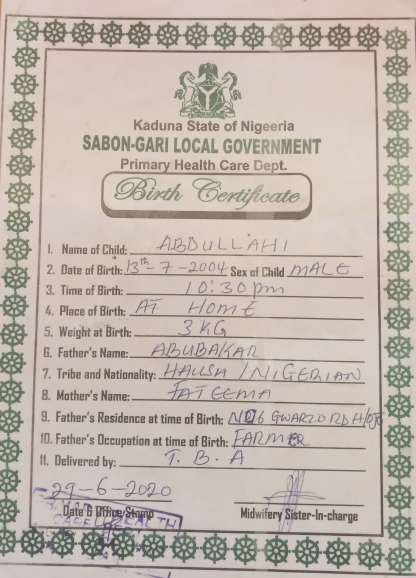 Kaduna State of Nigeeria
SABON-GARI LOCAL GOVERNMENT
Primary Health Care Dept.
Birth Certificate
1. Name of Child: ABDULLAHI
2. Date of Birth: 13th-7-2004 Sex of Child MALE
3. Time of Birth: 10:30 pm
4. Place of Birth: AT HOME
5. Weight at Birth: 3 KG
6. Father's Name: ABUBAKAR
7. Tribe and Nationality: HAUSA / NIGERIAN
8. Mother's Name: FATEEMA
9. Father's Residence at time of Birth: GWARZO RD
10. Father's Occupation at time of Birth: FARMER
11. Delivered by: T.B.A
29-6-2020
Date & Office Stamp Midwifery Sister-In-charge